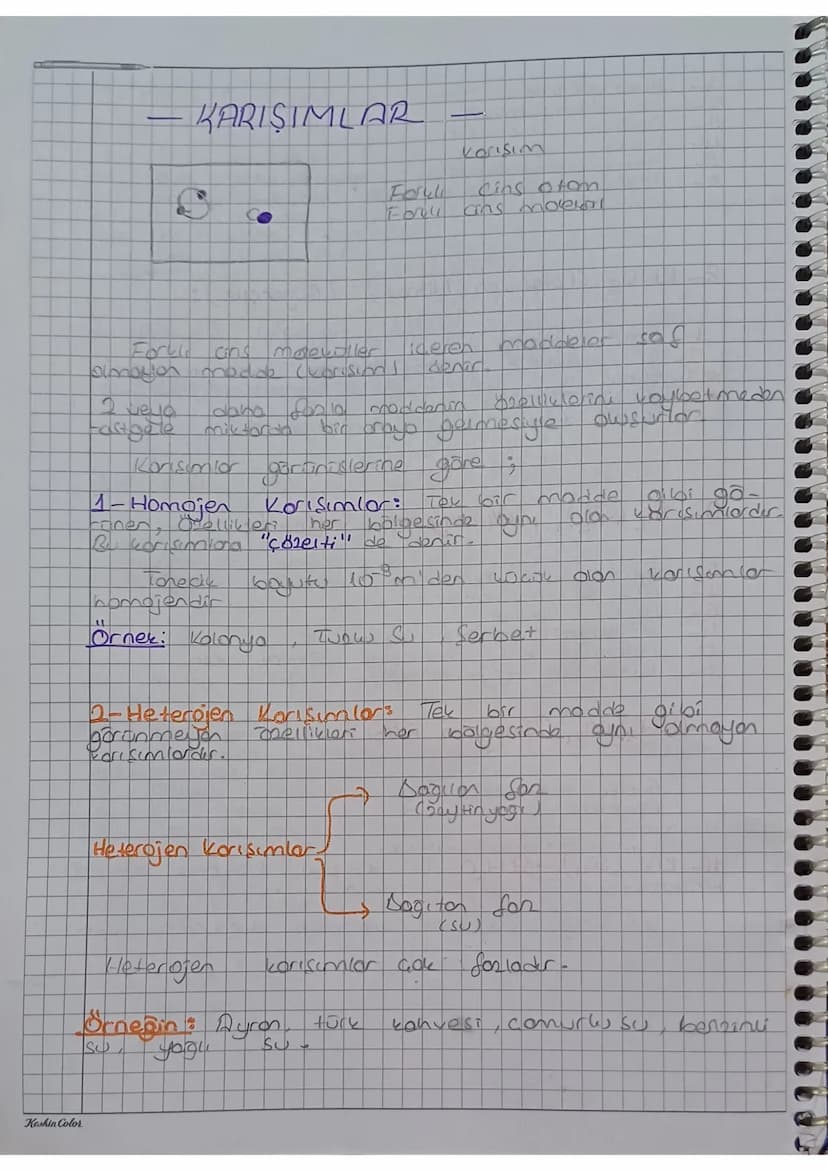 — KARIŞIMLAR —
Karışım
Farklı cins atom
Farklı cins molekül
Farklı cins moleküller içeren maddeler saf
olmayan madde (karışım) denir.
2 veya daha fazla maddenin özelliklerini kaybetmeden
rastgele miktarda bir araya gelmesiyle oluşurlar
Karışımlar görünüşlerine göre ;
1-Homojen Karışımlar: Tek bir madde gibi gö-
rünen, özellikleri her bölgesinde aynı olan karışımlardır.
Bu karışımlara "çözelti" de denir.
Tanecik boyutu 10⁻⁹ m'den küçük olan karışımlar
homojendir
Örnek: Kolonya, Tuzlu Su, Şerbet
2-Heterojen Karışımlar: Tek bir madde gibi
görünmeyen özellikleri her bölgesinde aynı olmayan
karışımlardır.
Dağılan faz
(Zeytinyağı)
Heterojen Karışımlar
Dağıtan faz
(su)
Heterojen karışımlar çok fazladır.
Örneğin: Ayran, türk kahvesi, çamurlu su, benzinli
su, yağlı su.
Keskin Color